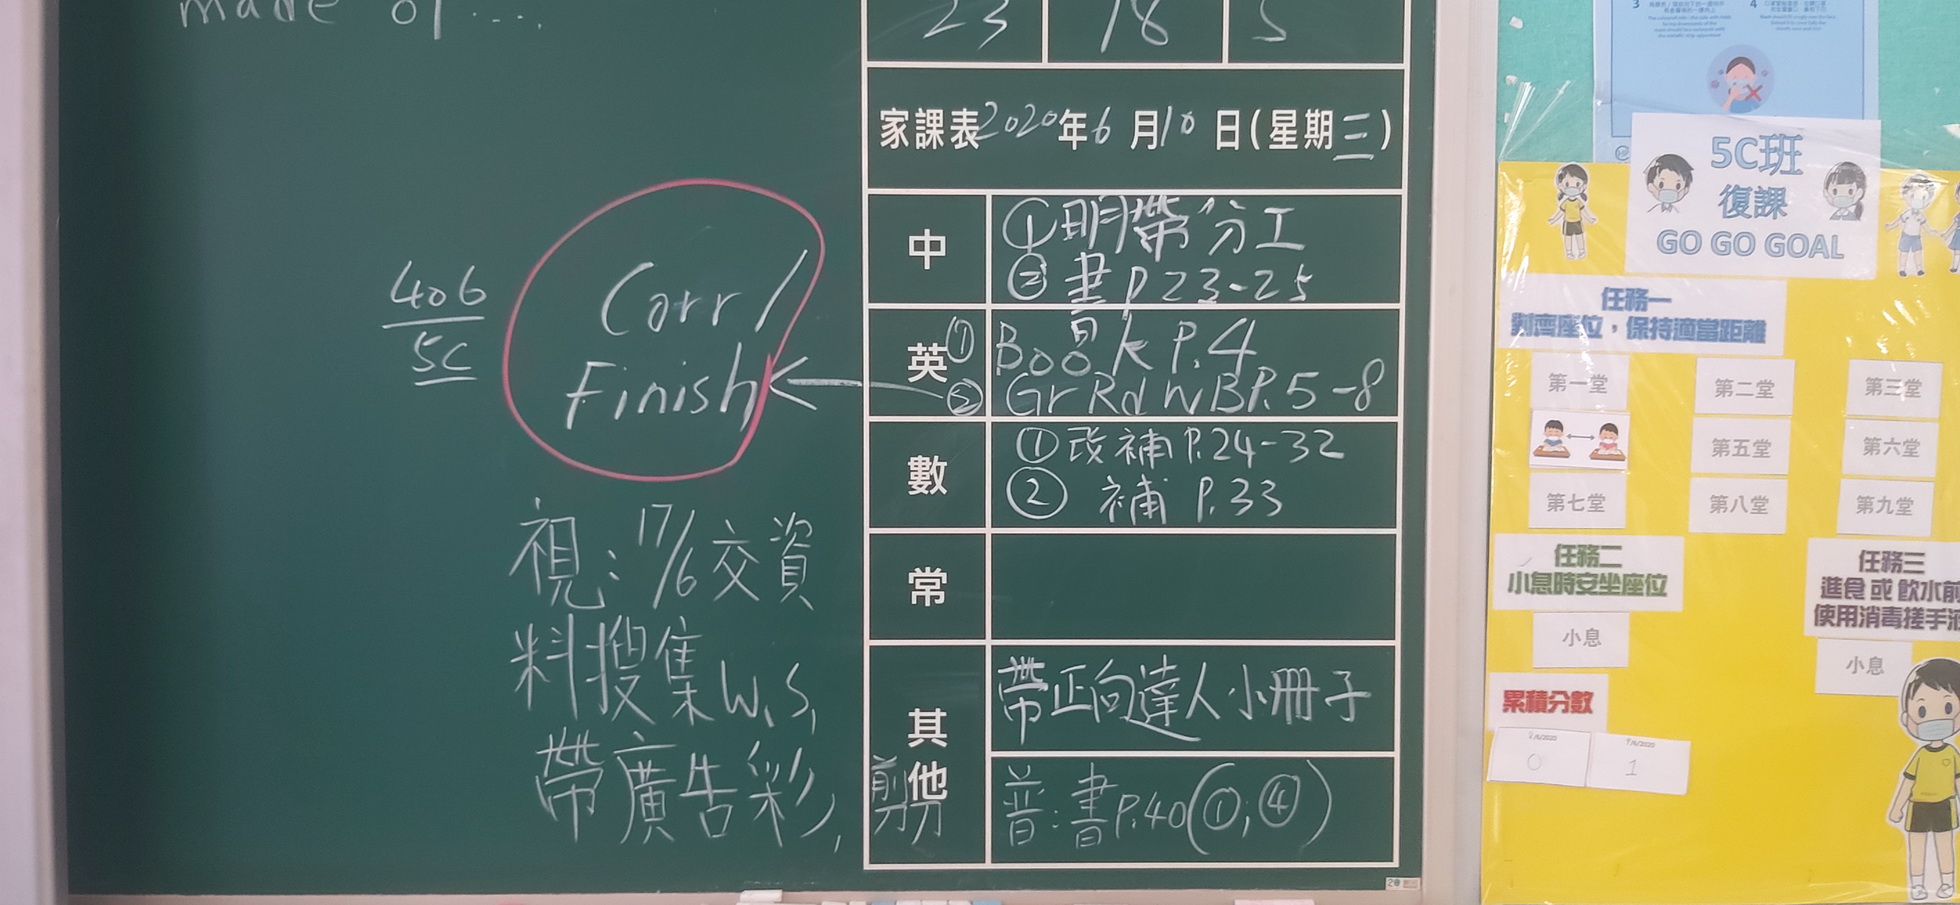 made of...
23 18 5
家課表2020年6月10日(星期三)
中
①明帶分工
②書P.23-25
英
①Book P.4
②GrRdWBP.5-8
數
①改補P.24-32
② 補 P.33
常
其他
帶正向達人小冊子
普:書P.40(①,④)
406
5C
Corr/
Finish
視:17/6交資
料搜集W.S,
帶廣告彩,剪刀
5C班
復課
GO GO GOAL
任務一
對齊座位,保持適當距離
第一堂
第二堂
第三堂
第五堂
第六堂
第七堂
第八堂
第九堂
任務二
小息時安坐座位
小息
任務三
進食或飲水前
使用消毒搓手液
小息
累積分數
2/6/2020
0
9/6/2020
1